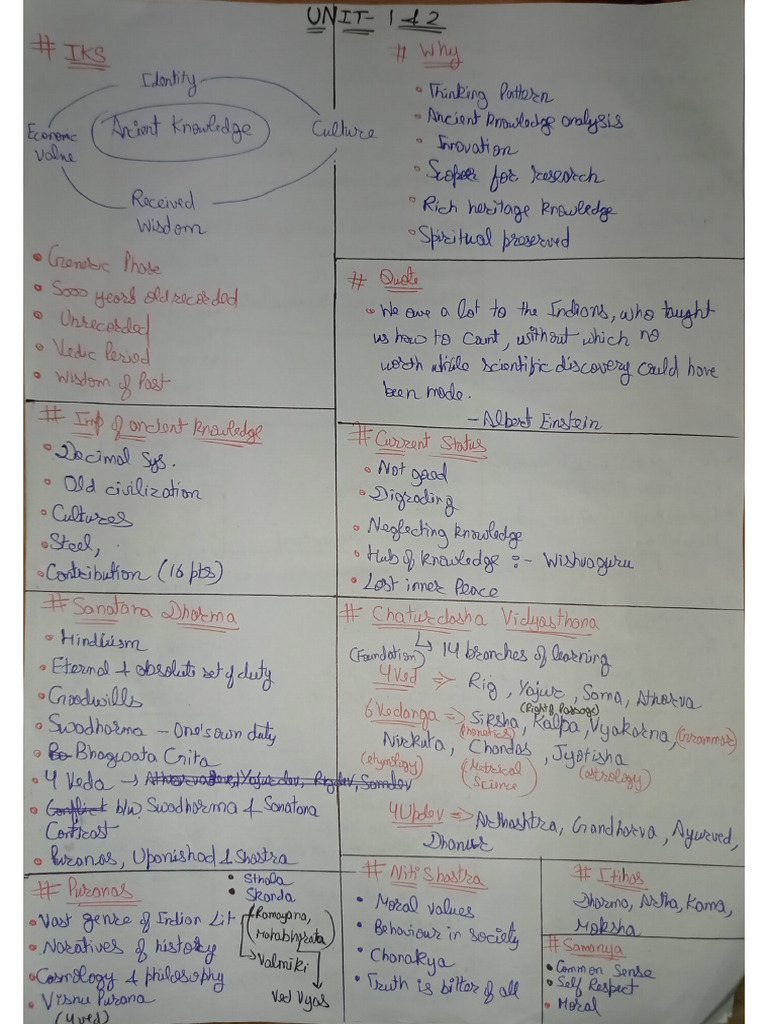 UNIT- 1 & 2
# IKS
Identity
Ancient Knowledge
Economic
Value
Culture
Received
Wisdom
• Generic Phase
• 5000 years old recorded
• Unrecorded
• Vedic Period
• Wisdom of Past
# Why
• Thinking Pattern
• Ancient knowledge analysis
• Innovation
• Scope for research
• Rich heritage knowledge
• Spiritual preserved
# Quote
• We owe a lot to the Indians, who taught
us how to Count, without which no
worth while scientific discovery could have
been made.
- Albert Einstein
# Imp of ancient knowledge
• Decimal Sys.
• Old civilization
• Cultures
• Steel,
• Contribution (16 pts)
# Current Status
• Not good
• Digrading
• Neglecting knowledge
• Hub of knowledge :- Wishvaguru
• Lost inner Peace
# Sanatana Dharma
• Hinduism
• Eternal & absolute set of duty
• Goodwills
• Swadharma - One's own duty
• Bhagwata Gita
• 4 Veda → Atharvadev, Yajurdev, Rigdev, Samdev
• Conflict b/w Swadharma & Sanatana
Contrast
• Puranas, Upanishad & Shastra
# Chaturdasha Vidyasthana
↳ 14 branches of learning
(Foundation)
4 Ved ⇒ Rig, Yajur, Sama, Atharva
(Right & Passage)
6 Vedanga ⇒ Siksha, Kalpa, Vyakarna, (Grammar)
(Phonetics)
Nirkuta, Chandas, Jyotisha
(etymology) (Metrical Science) (astrology)
4 Updev ⇒ Arthashtra, Gandharva, Ayurved,
Dhanur
# Puranas
• Sthala
• Skanda
• Vast genre of Indian Lit
• Naratives of history
• Cosmology & philosophy
• Visnu Purana
(4 ved)
(Ramayana,
Mahabhrata)
Valmiki
Ved Vyas
# Niti Shastra
• Moral values
• Behaviour in society
• Chanakya
• Truth is bitter of all
# Itihas
Dharma, Artha, Kama,
Moksha
# Samanya
• Common Sense
• Self Respect
• Moral